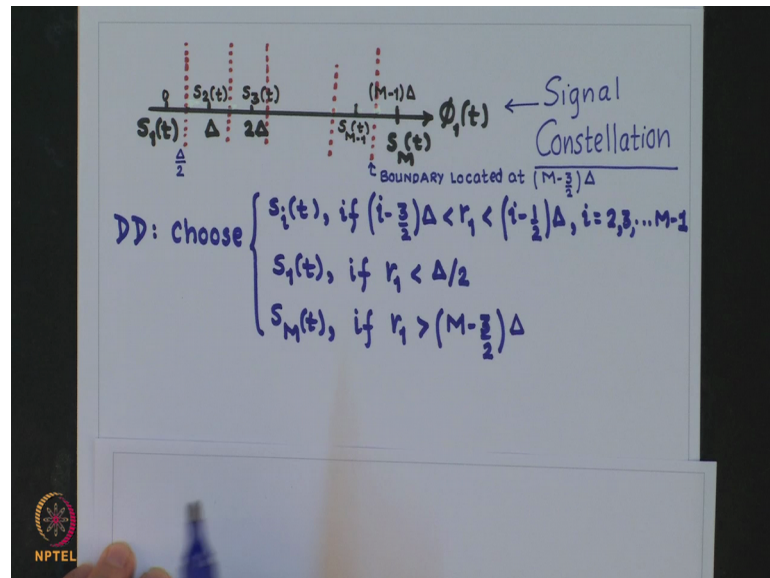 0 S₂(t) S₃(t) (M-1)Δ
S₁(t) Δ 2Δ S_{M-1}(t) S_M(t) ϕ₁(t) ← Signal
Constellation
Δ/2 BOUNDARY Located at (M-3/2)Δ
DD: Choose { Sᵢ(t), if (i-3/2)Δ < r₁ < (i-1/2)Δ, i=2,3,...M-1
S₁(t), if r₁ < Δ/2
S_M(t), if r₁ > (M-3/2)Δ
NPTEL